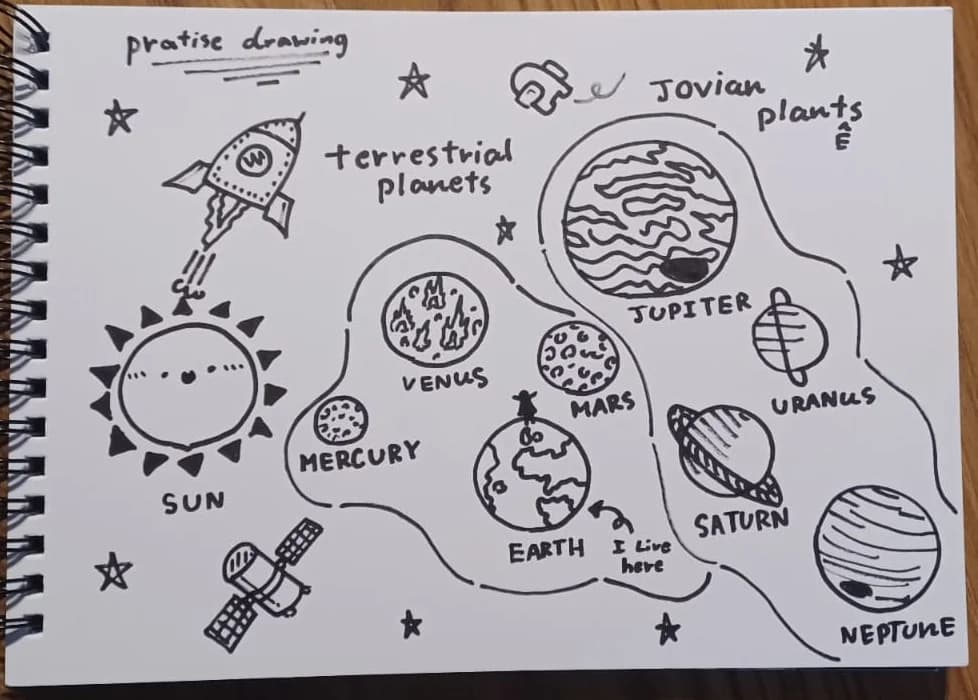 pratise drawing
Jovian
plants
Ê
terrestrial
planets
W
JUPITER
VENUS
MARS
URANUS
MERCURY
SUN
SATURN
EARTH
I Live
here
NEPTUNE